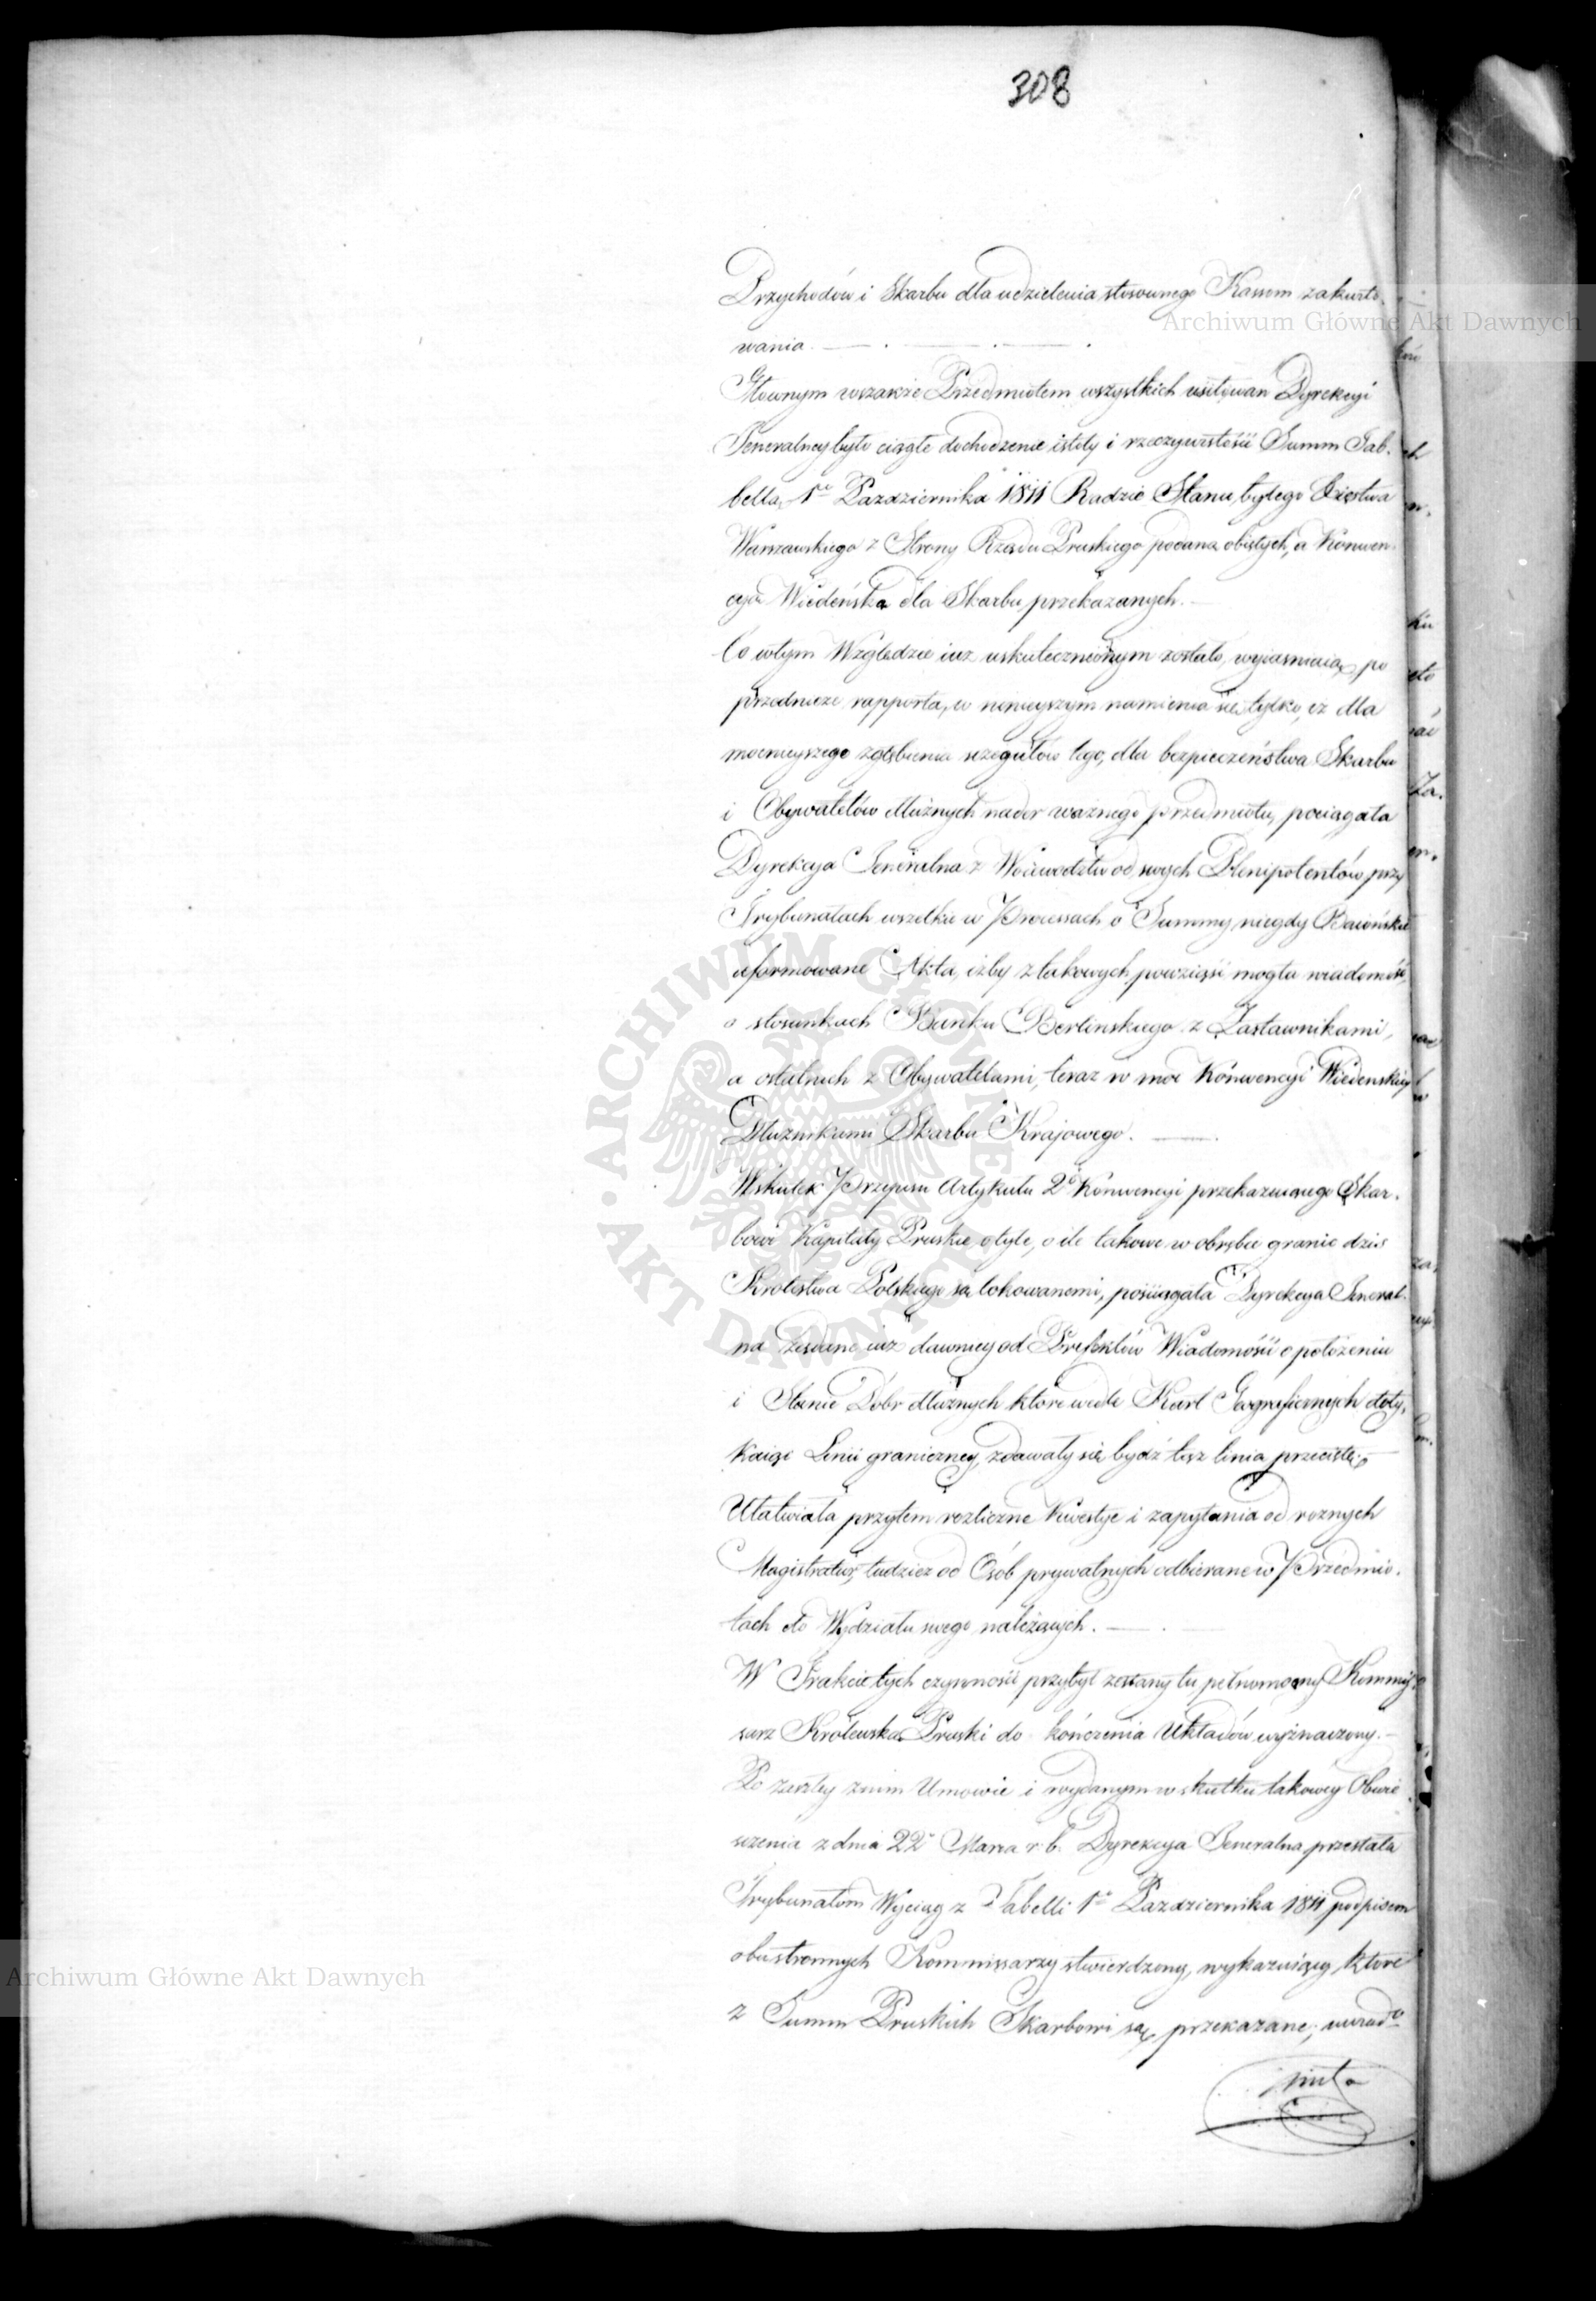 308
Przychodów i Skarbu dla udzielenia stosownego Kassom zakwito-
wania.
Głownym wszakże Przedmiotem wszystkich usiłowań Dyrekcyi
Generalney było ciągłe dochodzenie istoty i rzeczywistości Summ Tab-
bellą 1º Pazdziernika 1811 Radzie Stanu byłego Xięstwa
Warszawskiego z Strony Rządu Pruskiego podaną obiętych, a Konwen-
cyą Wiedeńską dla Skarbu przekazanych.
Co wtym Względzie iuż uskutecznionym zostało, wyiaśniaią po
przednicze rapporta, w ninieyszym namienia się tylko, iż dla
mocnieyszego zgłębienia szczegułów tego, dla bezpieczeństwa Skarbu
i Obywatelów dłużnych nader ważnego przedmiotu, pociągała
Dyrekcya Generalna z Woiewództw od swych Plenipotentów przy
Trybunałach wszelkie w Processach o Summy niegdy Baiońskie
uformowane Akta, iżby z takowych powziąść mogła wiadomość
o stosunkach Banku Berlinskiego z Zastawnikami,
a ostatnich z Obywatelami, teraz w moc Konwencyi Wiedenskiey
Dłużnikami Skarbu Krajowego.
Wskutek Przepisu Artykułu 2º Konwencyi przekazuiącego Skar-
bowi Kapitały Pruskie otyle, o ile takowe w obrębie granic dziś
Królestwa Polskiego są lokowanemi, posciągała Dyrekcya General-
na żądane iuż dawniey od Prefektów Wiadomości o położeniu
i Stanie Dóbr dłużnych które wedle Kart Geograficznych doty-
kaiąc Linii graniczney, zdawały się bydź tąż linią przecięte.
Ułatwiała przytem rozliczne Kwestye i zapytania od roznych
Magistratur, tudzież od Osób prywatnych odbierane w Przedmio-
tach do Wydziału swego należących.
W Trakcie tych czynności przybył zesłany tu pełnomocny Kommis-
sarz Królewsko Pruski do kończenia Układów wyznaczony.
Po zaszłey z nim Umowie i wydanym w skutku takowey Obwie
szczenia z dnia 22º Marca r. b. Dyrekcya Generalna przesłała
Trybunałom Wyciąg z Tabelli 1º Pazdziernika 1811 podpisem
obustronnych Kommissarzy stwierdzony, wykazuiący, które
z Summ Pruskich Skarbowi są przekazane;
Archiwum Główne Akt Dawnych
Archiwum Główne Akt Dawnych
ARCHIWUM GŁÓWNE AKT DAWNYCH